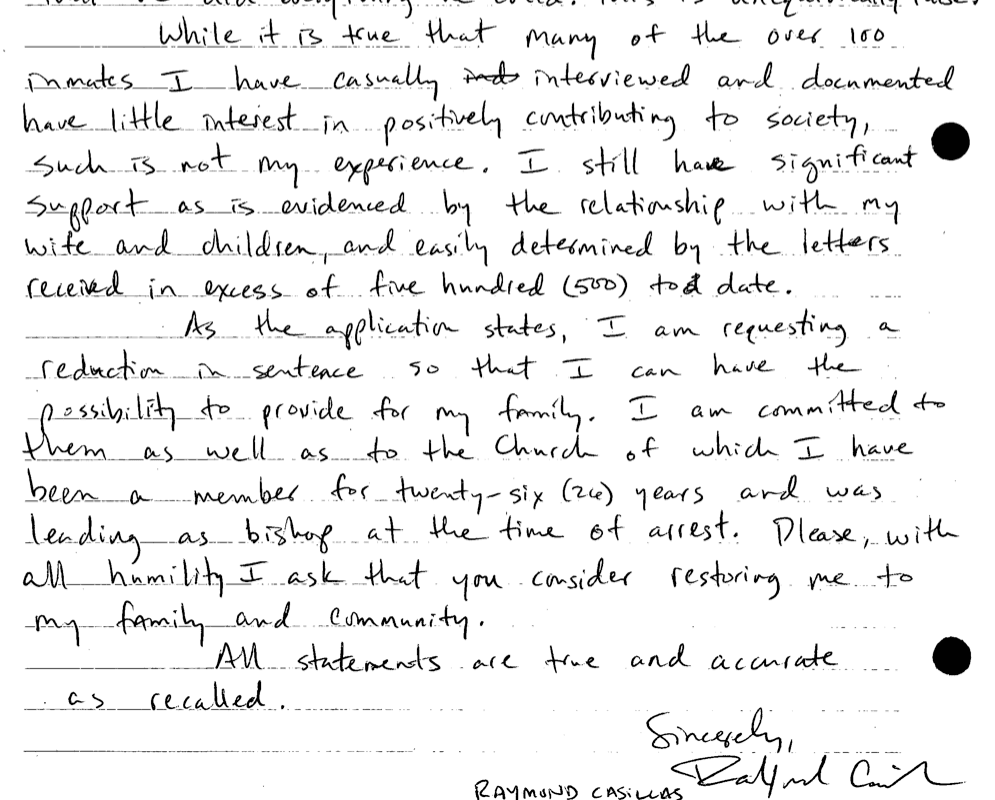 While it is true that many of the over 100
inmates I have casually interviewed and documented
have little interest in positively contributing to society,
such is not my experience. I still have significant
support as is evidenced by the relationship with my
wife and children, and easily determined by the letters
received in excess of five hundred (500) to date.
As the application states, I am requesting a
reduction in sentence so that I can have the
possibility to provide for my family. I am committed to
them as well as to the Church of which I have
been a member for twenty-six (26) years and was
leading as bishop at the time of arrest. Please, with
all humility I ask that you consider restoring me to
my family and community.
All statements are true and accurate
as recalled.
Sincerely,
RAYMOND CASILLAS